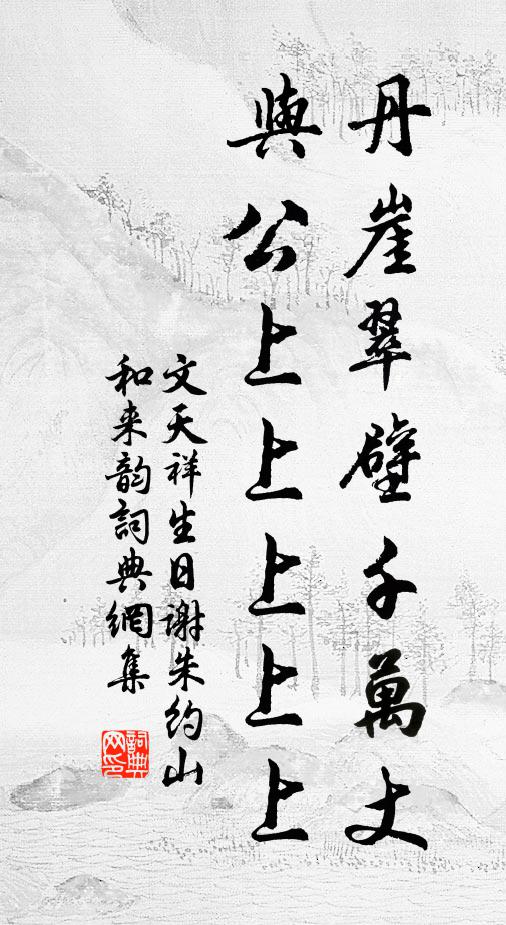 丹崖翠壁千萬丈
與公上上上上上
文天祥生日谢朱约山
和来韵詞典網集
詞典網印